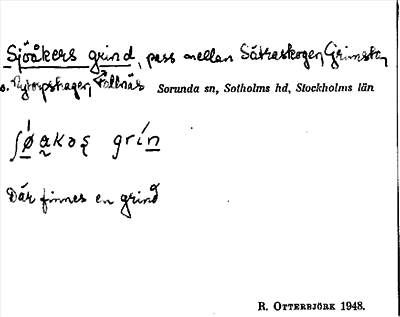 Sjöåkers grind, pass mellan Sätraskogen, Grimsta,
o. Nytorpshagen, Fållnäs Sorunda sn, Sotholms hd, Stockholms län
grin
Där finnes en grind
R. OTTERBJÖRK 1948.